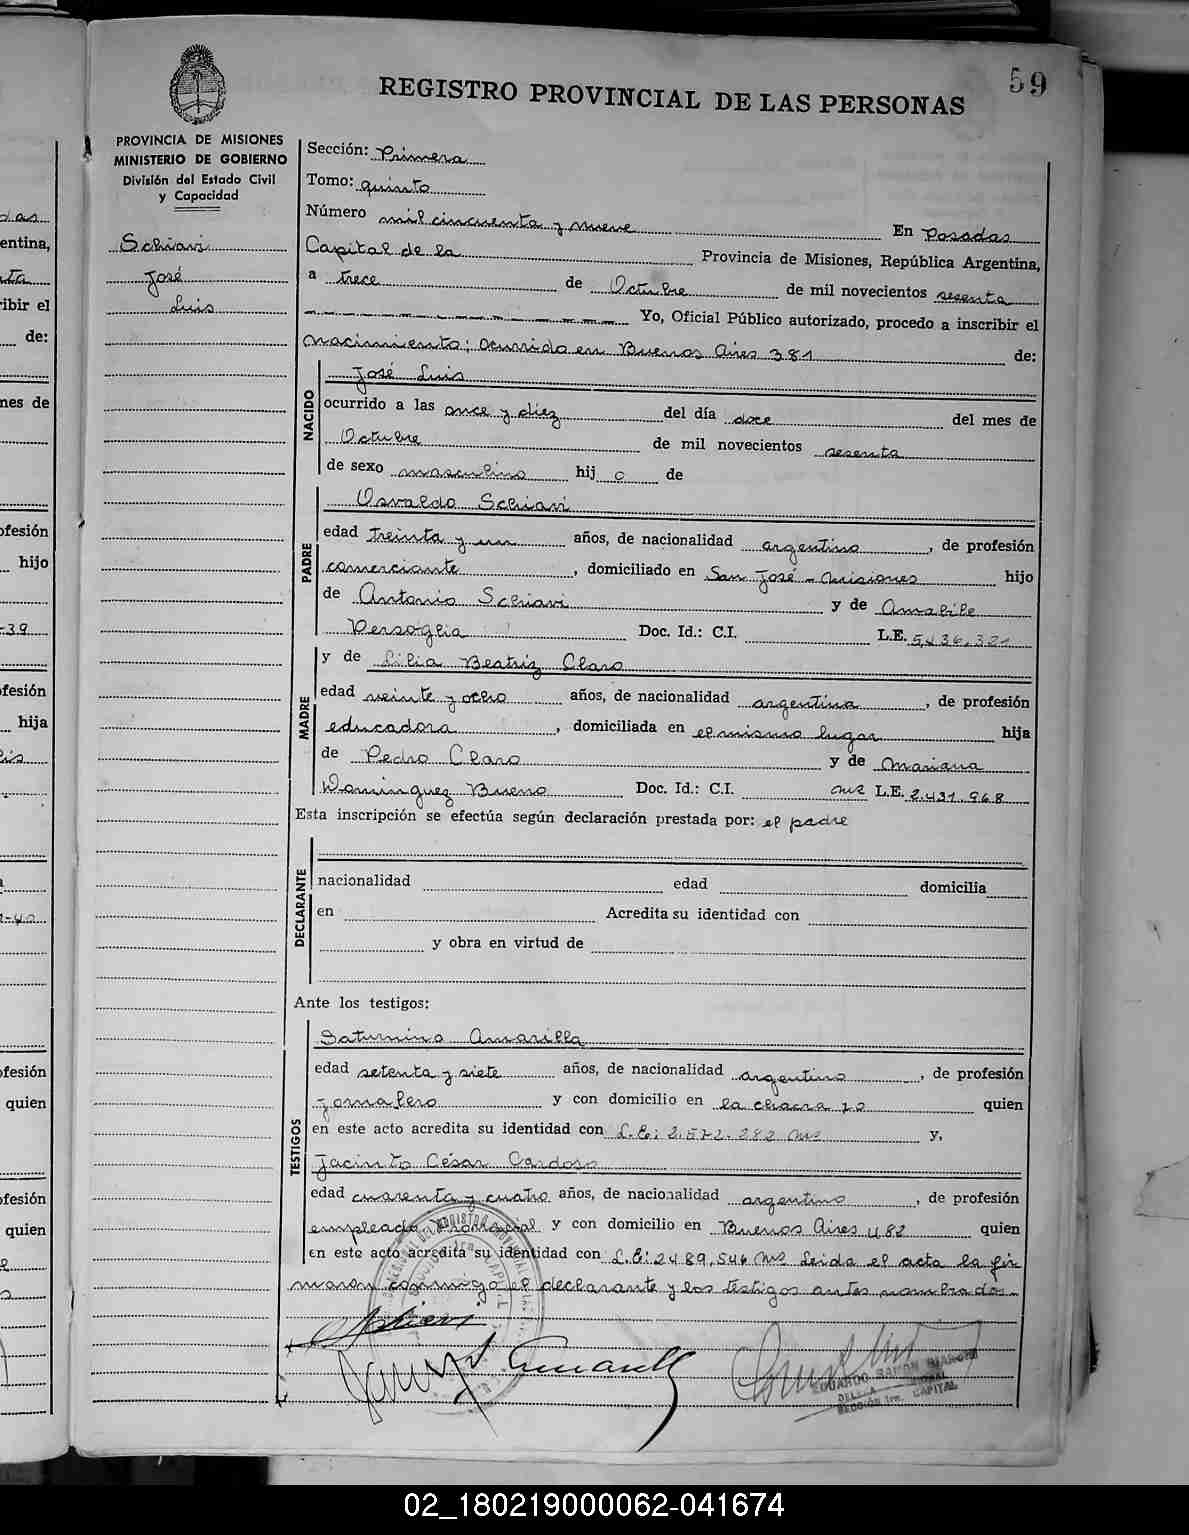 59
REGISTRO PROVINCIAL DE LAS PERSONAS
PROVINCIA DE MISIONES
MINISTERIO DE GOBIERNO
División del Estado Civil
y Capacidad
Schiavi
José
Luis
Sección: Primera
Tomo: quinto
Número mil cincuenta y nueve En Posadas
Capital de la Provincia de Misiones, República Argentina,
a trece de Octubre de mil novecientos sesenta
Yo, Oficial Público autorizado, procedo a inscribir el
nacimiento; ocurrido en Buenos Aires 381 de:
NACIDO
José Luis
ocurrido a las once y diez del día doce del mes de
Octubre de mil novecientos sesenta
de sexo masculino hij o de
PADRE
Osvaldo Schiavi
edad treinta y un años, de nacionalidad argentino, de profesión
comerciante, domiciliado en San José - Misiones hijo
de Antonio Schiavi y de Amabile
Persoglia Doc. Id.: C.I. L.E. 5.436.321
MADRE
y de Lilia Beatriz Claro
edad veinte y ocho años, de nacionalidad argentina, de profesión
educadora, domiciliada en el mismo lugar hija
de Pedro Claro y de Mariana
Dominguez Bueno Doc. Id.: C.I. L.E. 2.431.968
Esta inscripción se efectúa según declaración prestada por: el padre
DECLARANTE
nacionalidad edad domicilia
en Acredita su identidad con
y obra en virtud de
Ante los testigos:
TESTIGOS
Saturnino Amarilla
edad setenta y siete años, de nacionalidad argentino, de profesión
jornalero y con domicilio en la chacra 70 quien
en este acto acredita su identidad con L.E: 2.572.282 y,
Jacinto César Cardoso
edad cuarenta y cuatro años, de nacionalidad argentino, de profesión
empleado Provincial y con domicilio en Buenos Aires 482 quien
en este acto acredita su identidad con L.E: 2489.546 Leida el acta la fir
maron conmigo el declarante y los testigos antes nombrados
EDUARDO RAMON BIANCHI
SECCIÓN 1ra. CAPITAL
das
entina,
ribir el
de:
mes de
ofesión
hijo
-39
ofesión
hija
ofesión
quien
ofesión
quien
02_180219000062-041674